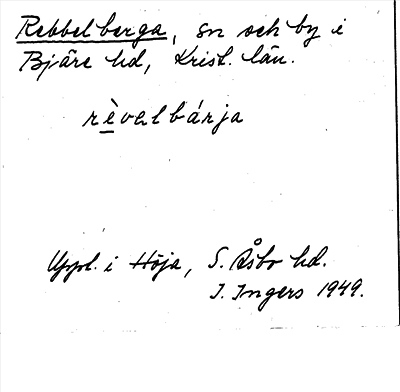 Rebbelberga, sn och by i
Bjäre hd, Krist. län.
rèvalbárja
Uppl. i Höja, S. Åsbo hd.
I. Ingers 1949.